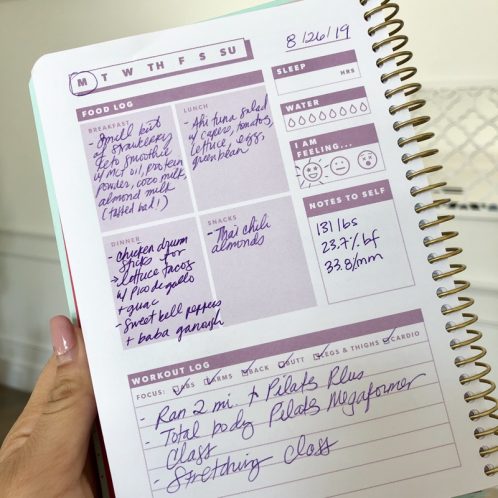 8/26/19
M T W TH F S SU
FOOD LOG
BREAKFAST
- Small bit
of strawberry
Keto smoothie
w/ mct oil, protein
powder, coco milk,
almond milk
(tasted bad!)
LUNCH
- Ahi tuna salad
w/ capers, tomatoes,
lettuce, eggs,
green bean
DINNER
- chicken drum
sticks for
→ lettuce tacos
w/ Pico de gallo
+ guac
- Sweet bell peppers
+ baba ganoush
SNACKS
- Thai chili
almonds
SLEEP
HRS
WATER
I AM
FEELING...
NOTES TO SELF
131 lbs
23.7% bf
33.8% mm
WORKOUT LOG
FOCUS: ABS ARMS BACK BUTT LEGS & THIGHS CARDIO
- Ran 2 mi. + Pilates Plus
- Total body Pilates Megaformer
Class
- Stretching class